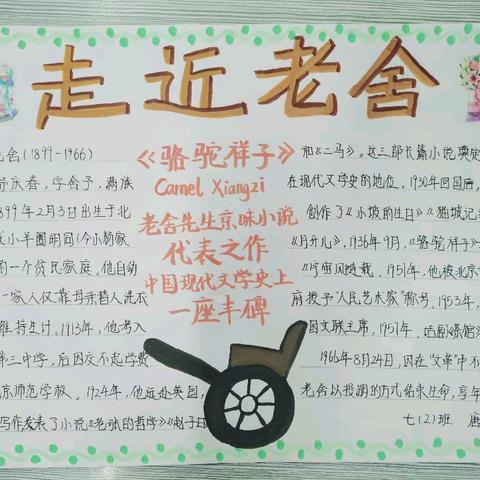 走近老舍
老舍(1899-1966)
舒庆春,字舍予,满族
899年2月3日出生于北
小羊圈胡同(今小杨家
的一个贫民家庭。他自幼
一家人仅靠母亲替人洗衣
维持生计。1913年,他考入
第三中学,后因交不起学费
京师范学校。1924年,他远赴英国,
写作发表了小说《老张的哲学》《赵子曰
《骆驼祥子》
Camel Xiangzi
老舍先生京味小说
代表之作
中国现代文学史上
一座丰碑
和《二马》。这三部长篇小说奠定
在现代文学史的地位。1930年回国后,
创作了《小坡的生日》《猫城记
《月牙儿》。1936年9月,《骆驼祥子》
《宇宙风》连载。1951年,他被北京
府授予"人民艺术家"称号。1953年,
国文联主席。1957年,话剧《茶馆》
1966年8月24日,因在"文革"中不
老舍以投湖的方式结束生命,享年
七(2)班 唐